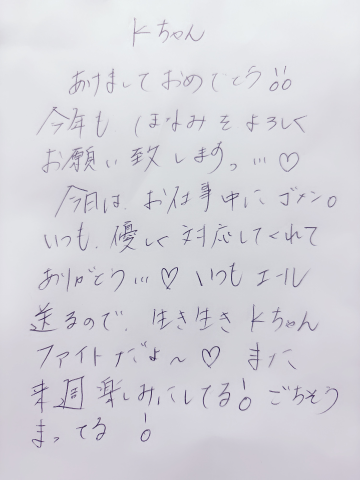 Kちゃん
あけましておめでとう!!
今年も ほなみをよろしく
お願い致しますっ…♡
今日は、お仕事中に ゴメン。
いつも、優しく対応してくれて
ありがとう…♡ いつもエール
送るので、生き生きKちゃん
ファイトだよ〜♡ また
来週楽しみにしてる! ごちそう
まってる !